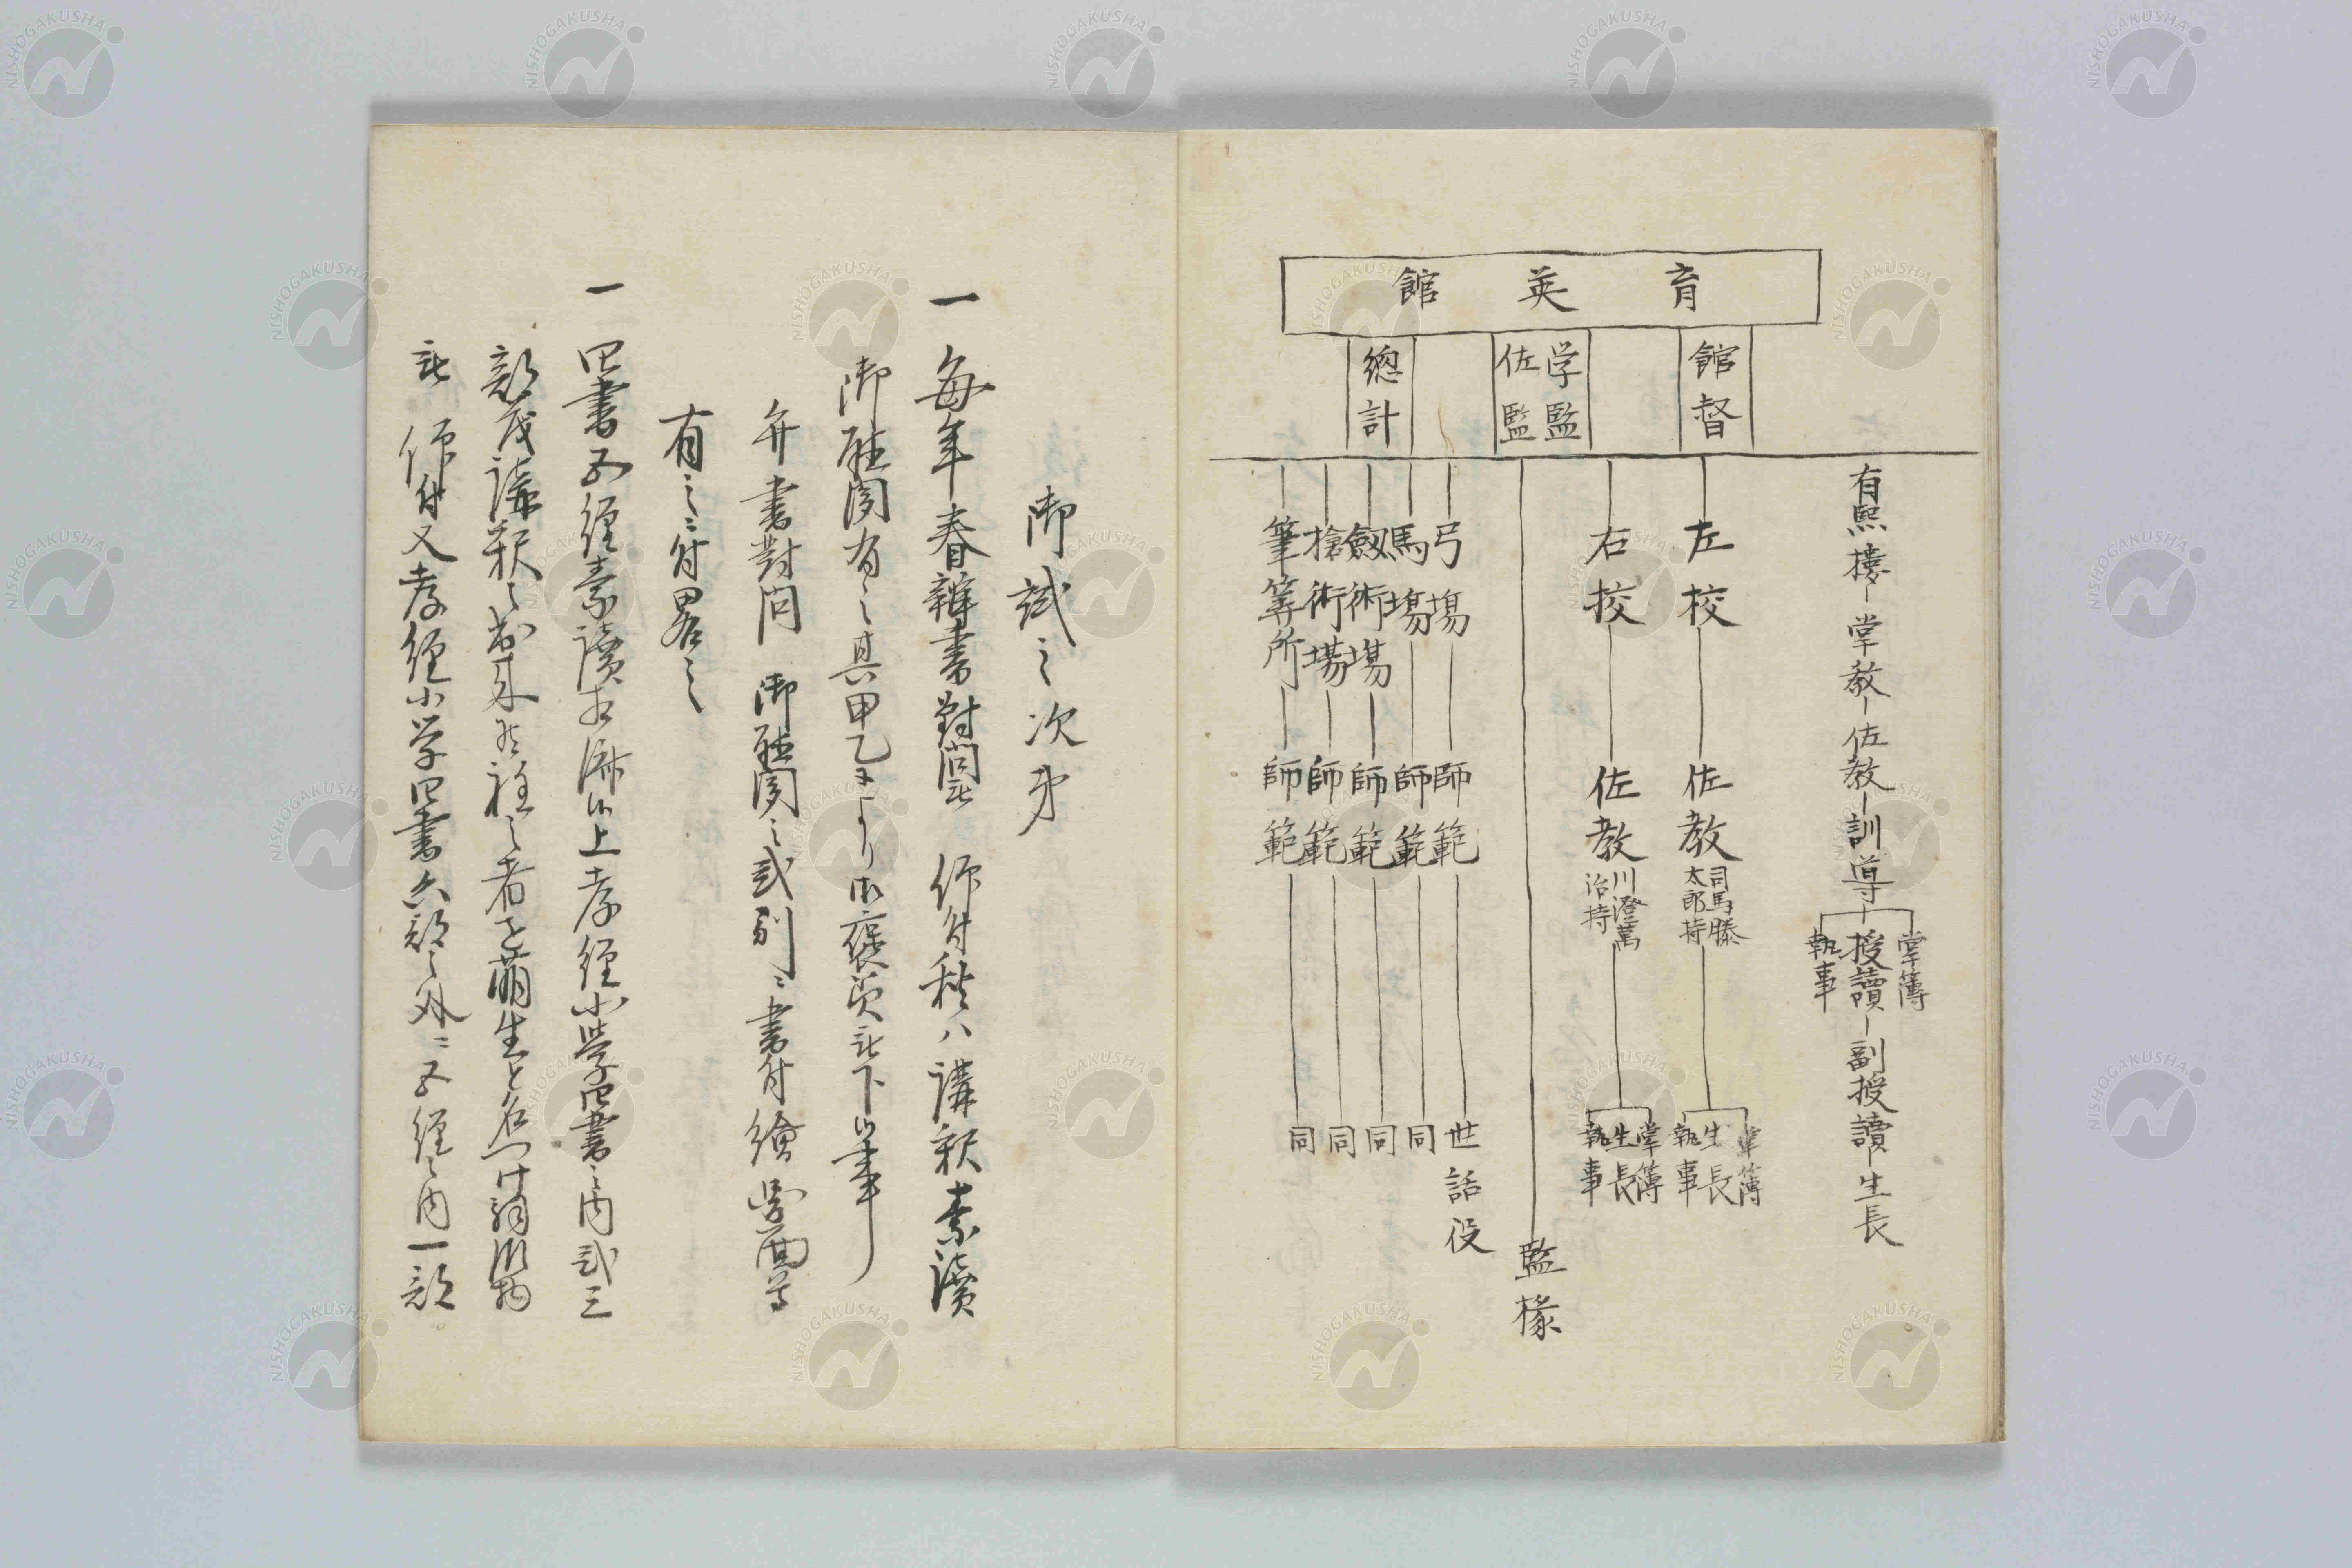 育英館
館督
学監
佐監
總計
有熙樓－掌教－佐教－訓導－授讀－副授讀－生長
掌簿
執事
左校
佐教
司馬勝
太郎持
掌簿
生長
執事
右校
佐教
川澄萬
治持
掌簿
生長
執事
監椽
弓場 師範 世話役
馬場 師範 同
劔術場 師範 同
槍術場 師範 同
筆筭所 師範 同
御試之次第
一毎年春辯書對問 仰付秋八講釈素讀
御聴聞有之其甲乙により御褒美被下候事
弁書對問 御聴聞之式別ニ書付繪圖等
有之ニ付畧之
一四書五経素讀相済候上孝経小學四書之内弐三
部茂講釈之出来候程之者を萠生と名つけ
被 仰付又孝経小学四書六部之外ニ五経之内一部
NISHOGAKUSHA